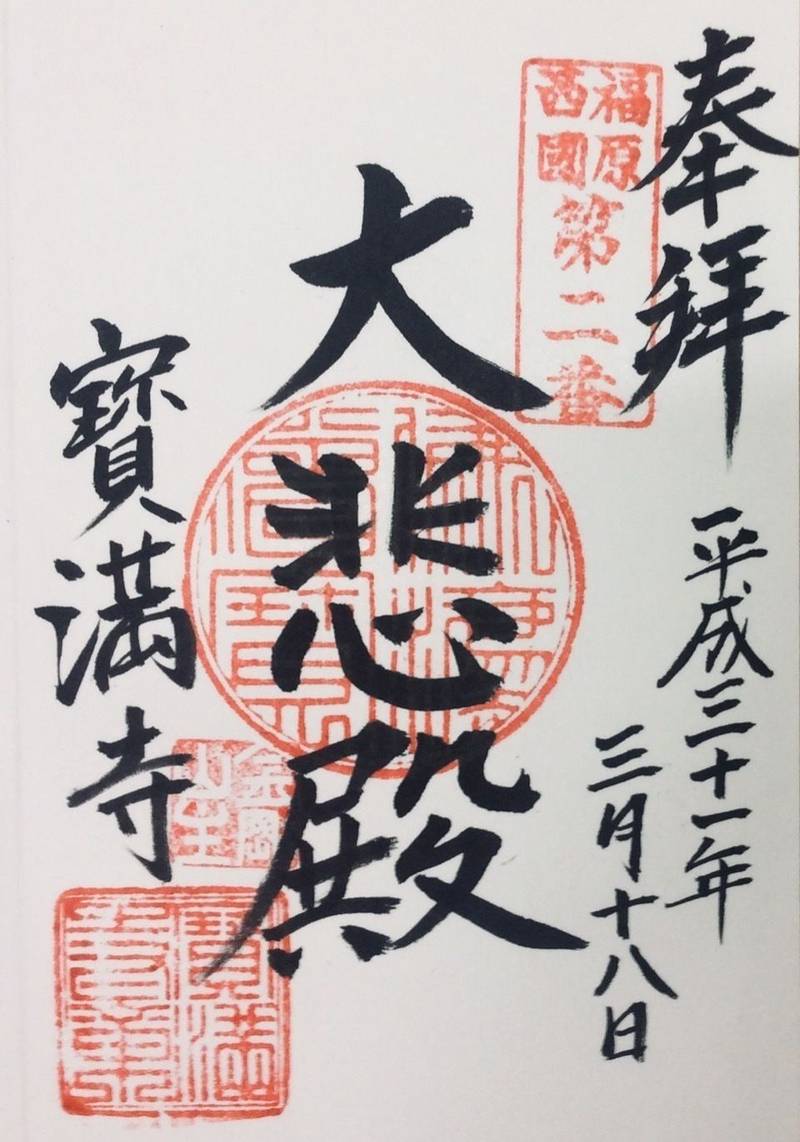 奉拜
福原
西國
第二番
平成三十一年
三月十八日
大悲殿
寳満寺